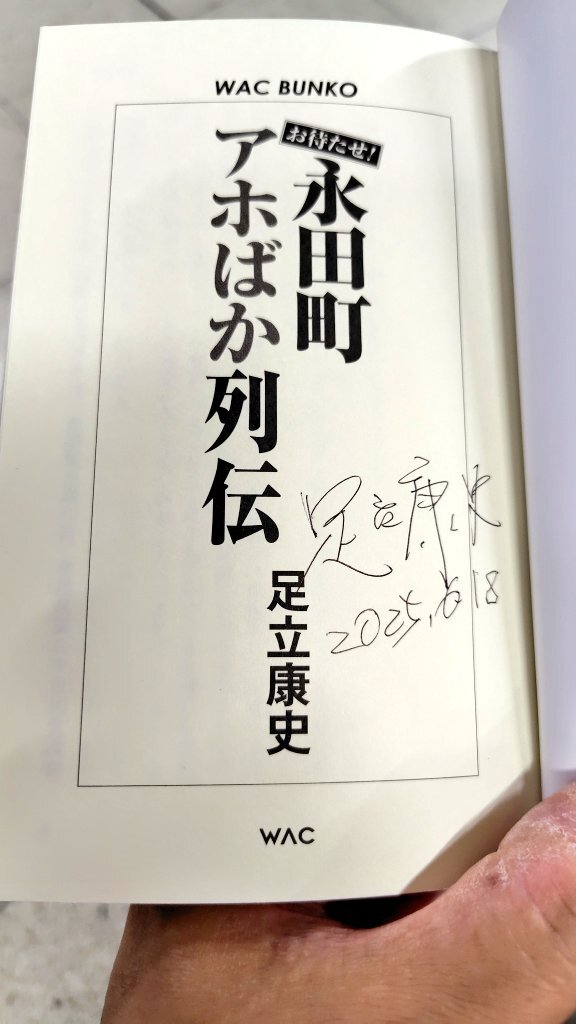 WAC BUNKO
お待たせ!
永田町
アホばか列伝
足立康史
足立康史
2025.6.18
WAC